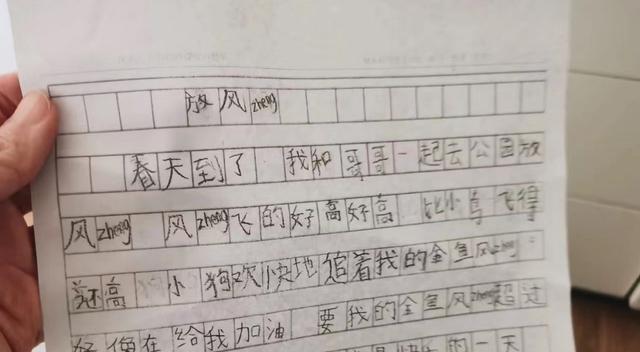 放风zheng
春天到了 我和哥哥一起去公园放
风zheng 风zheng飞的好高好高 比小鸟飞得
还高 小狗欢快地追着我的金鱼风zheng
好像在给我加油 要我的金鱼风zheng超过
快乐的一天